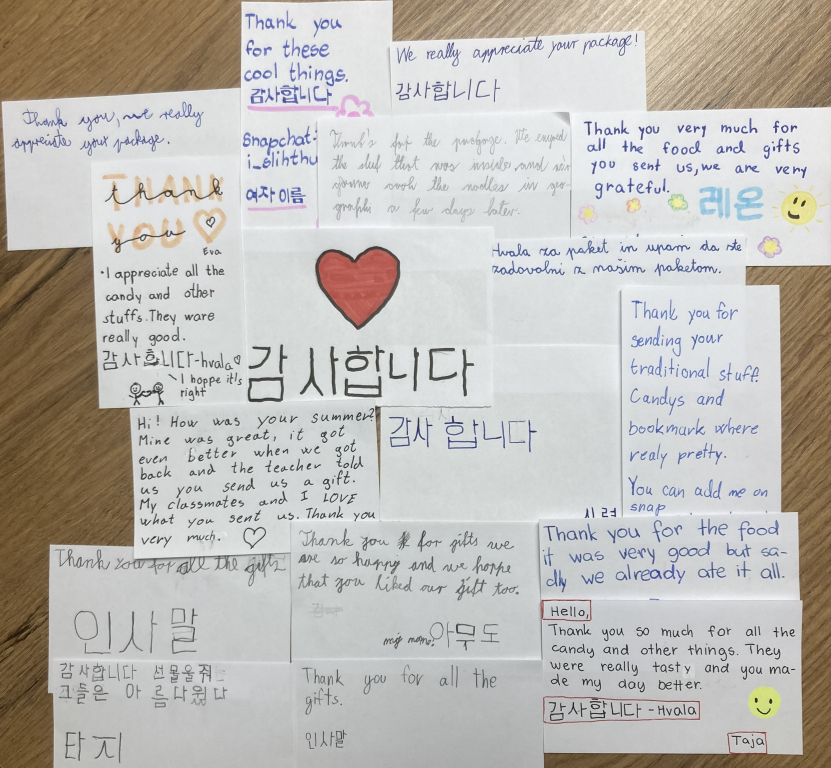 Thank you
for these
cool things.
감사합니다
Snapchat:
i_slihthu
여자 이름
We really appreciate your package!
감사합니다
Thank you, we really
appreciate your package.
for the package. We enjoyed
the stuf that was inside and
the noodles in geo-
a few days later.
Thank you very much for
all the food and gifts
you sent us, we are very
grateful.
레온
THANK
YOU
thank
you
Eva
•I appreciate all the
candy and other
stuffs. They ware
really good.
감사합니다-hvala
I hoppe it's
right
감사합니다
Hvala za paket in upam da ste
zadovolni z našim paketom.
Thank you for
sending your
traditional stuff.
Candys and
bookmark where
realy pretty.
You can add me on
snap
Hi! How was your summer?
Mine was great, it got
even better when we got
back and the teacher told
us you send us a gift.
My classmates and I LOVE
what you sent us. Thank you
very much.
감사 합니다
Thank you for all the gifts
인사말
Thank you for gifts we
are so happy and we hoppe
that you liked our gift too.
아무도
Thank you for the food
it was very good but sa-
dly we already ate it all.
Hello,
Thank you so much for all the
candy and other things. They
were really tasty and you ma-
de my day better.
감사합니다 - Hvala
Taja
감사합니다 선물을 줘
그들은 아름다웠다
타지
Thank you for all the
gifts.
인사말